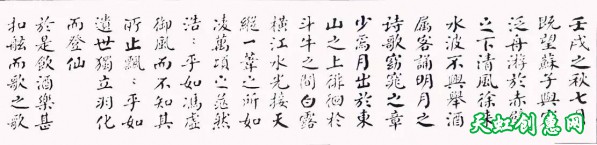 壬戌之秋七月
既望蘇子與
泛舟游於赤壁
之下清風徐來
水波不興舉酒
屬客誦明月之
詩歌窈窕之章
少焉月出於東
山之上徘徊於
斗牛之間白露
橫江水光接天
縱一葦之所如
凌萬頃之茫然
浩〻乎如馮虛
御風而不知其
所止飄〻乎如
遺世獨立羽化
而登仙
於是飲酒樂甚
扣舷而歌之歌
天虹创意网